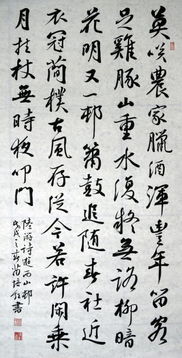 莫笑農家臘酒渾豐年留客
足雞豚山重水復疑無路柳暗
花明又一邨簫鼓追隨春社近
衣冠簡樸古風存從今若許閑乘
月拄杖無時夜叩門
陸游詩遊西山邨
書